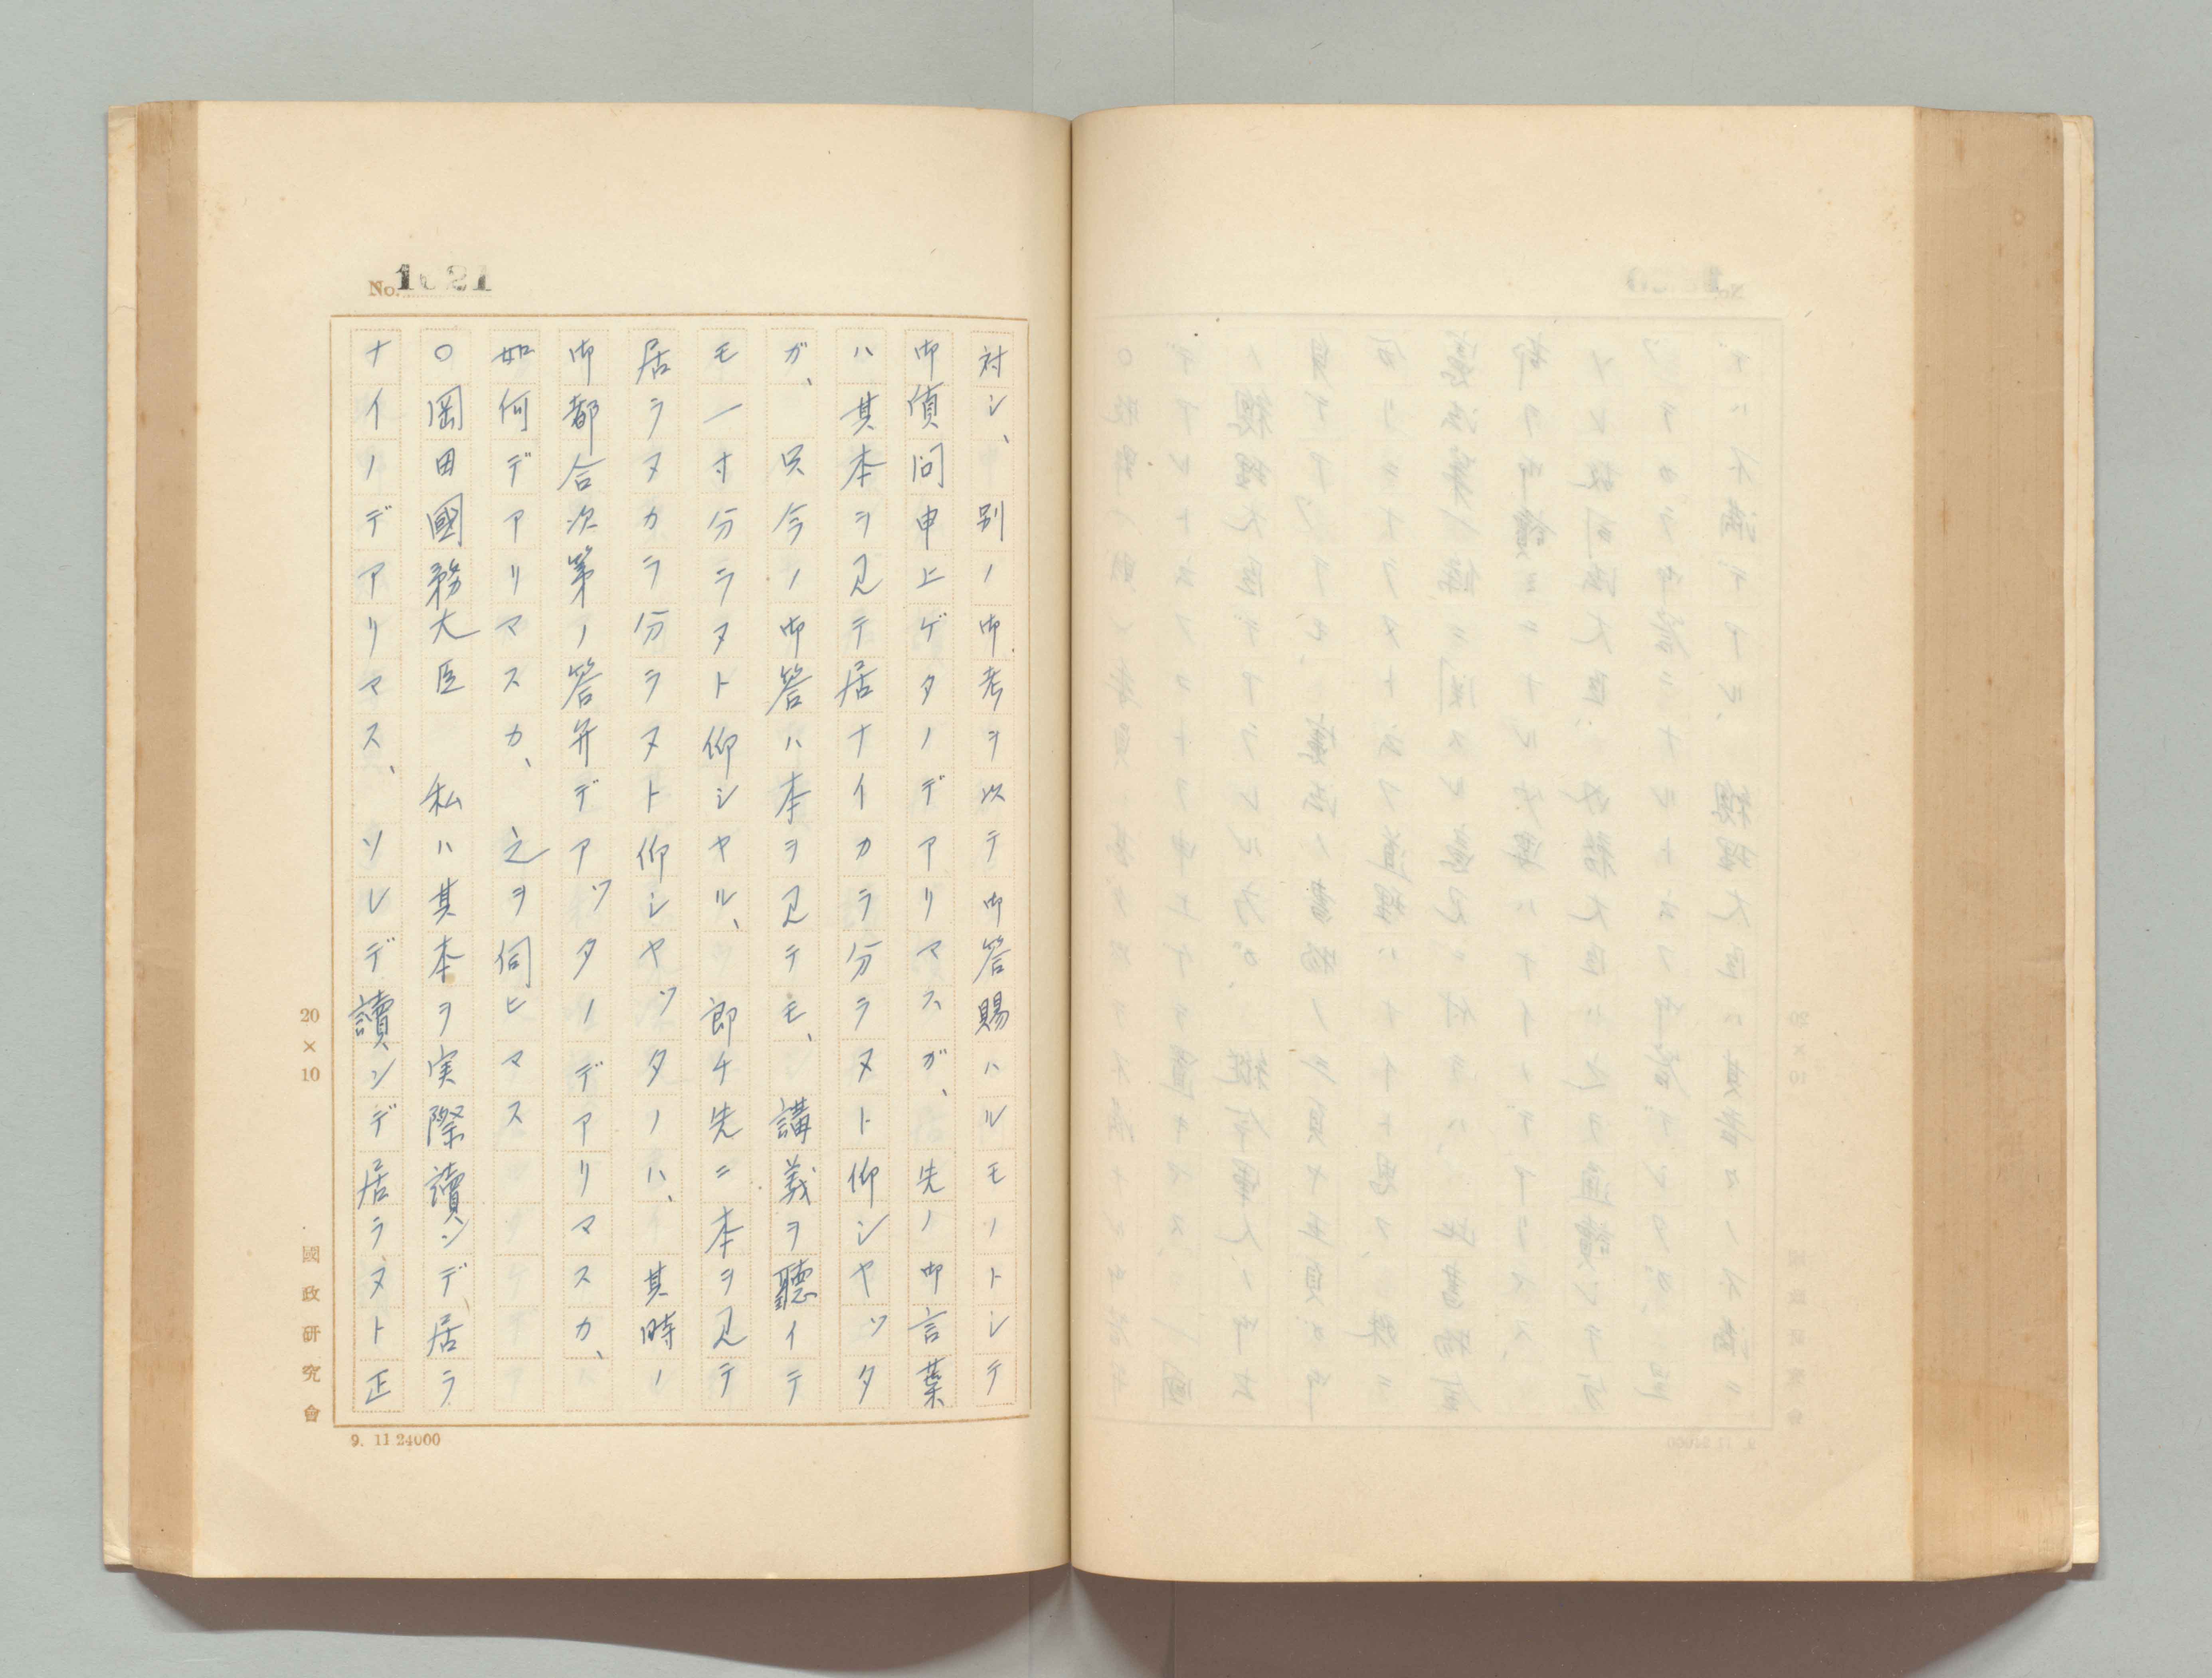 No. 1021
対シ、別ノ御考ヲ以テ御答賜ハルモノトシテ
御質問申上ゲタノデアリマスガ、先ノ御言葉
ハ其本ヲ見テ居ナイカラ分ラヌト仰シヤツタ
ガ、只今ノ御答ハ本ヲ見テモ、講義ヲ聽イテ
モ一寸分ラヌト仰シヤル、郎チ先ニ本ヲ見テ
居ラヌカラ分ラヌト仰シヤツタノハ、其時ノ
御都合次第ノ答弁デアツタノデアリマスカ、
如何デアリマスカ、之ヲ伺ヒマス
○岡田國務大臣 私ハ其本ヲ実際讀ンデ居ラ
ナイノデアリマス、ソレデ讀ンデ居ラヌト正
20×10
國政研究會
9. 11 24000